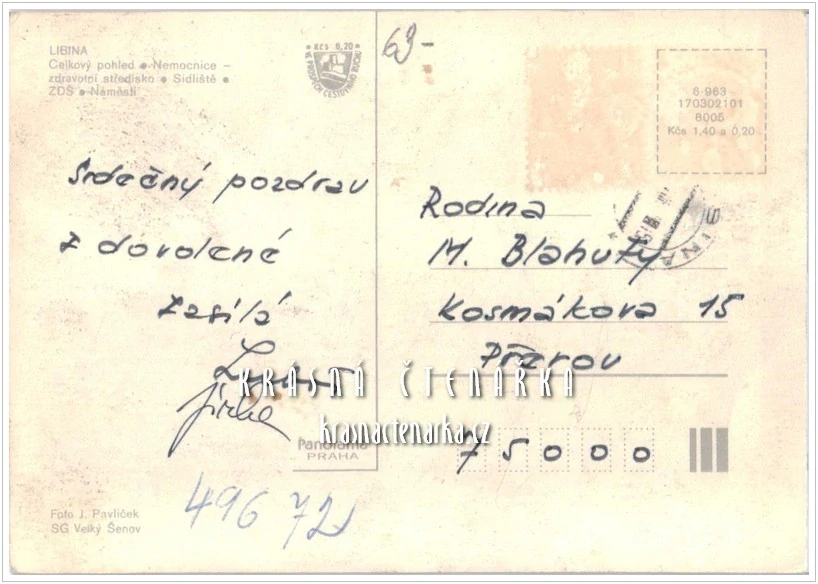 LIBINA
Celkový pohled • Nemocnice –
zdravotní středisko • Sídliště •
ZDŠ • Náměstí
• Kčs 0,20 •
VE PROSPĚCH CESTOVNÍHO RUCHU
69-
6-963
170302101
6005
Kčs 1,40 a 0,20
Srdečný pozdrav
z dovolené
zasílá
Jirka
Rodina
M. Blahuty
Kosmákova 15
Přerov
75000
KRÁSNÁ ČTENÁŘKA
krasnactenarka.cz
Panorama
PRAHA
Foto J. Pavlíček
SG Velký Šenov
496 72